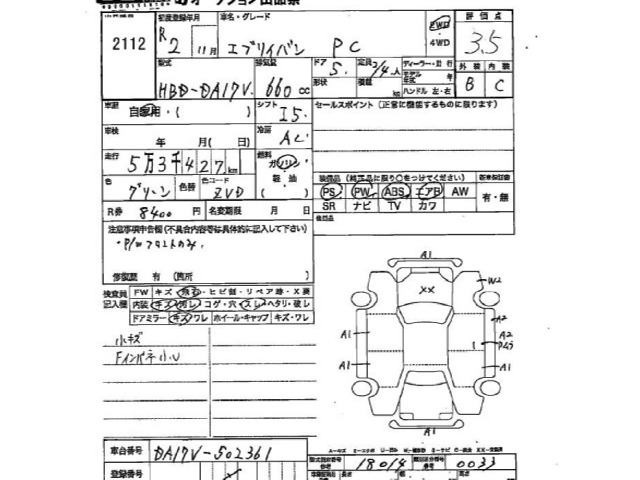 初度登録年月 車名・グレード 評価点
2112 R2 11月 エブリイバン PC 2WD 4WD 3.5
型式 排気量 ドア 定員 ディーラー・並行 外装 内装
HBD-DA17V 660cc 5 2/4人 形状 積載 kg モデル年式 年 ハンドル 左・右 B C
車歴 自家用・( ) シフト I5 セールスポイント (正常に機能するものに限ります)
車検 年 月( 日) 冷房 AC
走行 5万3千427km 燃料 ガソリン 軽油 装備品 (純正品に限り○をつけてください) 新車保証書
色 グリーン 色替 色コード ZVD PS PW ABS エアB AW 有・無
R券 8400円 名変期限 月 日 SR ナビ TV カワ
注意事項申告欄(不具合内容等は具体的に記入して下さい)
・P/Wフロントのみ
修復歴 有 (箇所 )
検査員記入欄 FW キズ・飛石・ヒビ割・リペア跡・X要
内装 キズ・汚れ・コゲ・穴・スレ・ヘタリ・破レ
ドアミラー キズ・ワレ ホイール・キャップ キズ・ワレ
小キズ
FインパネU
A1
XX W2
A1 A2
A2
A1 A1
A1
車台番号 DA17V-502361
型式指定番号 18014 類別区分番号 0033
登録番号